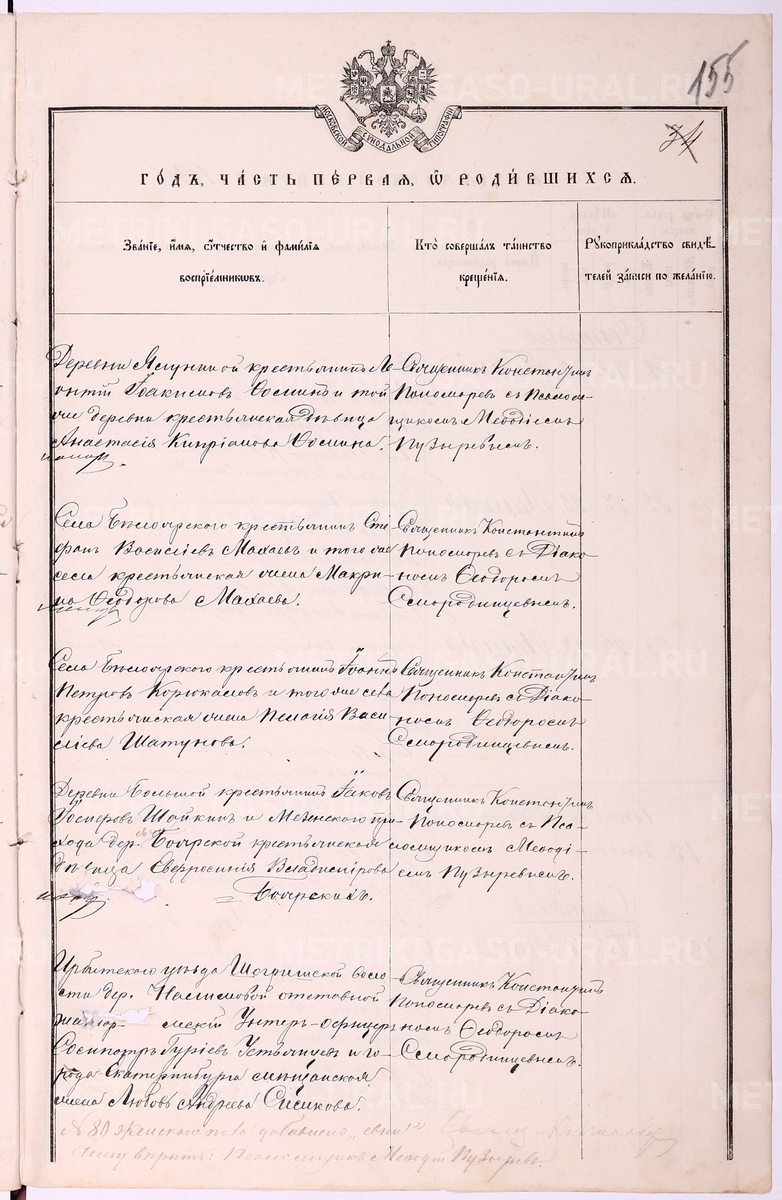 155
34
МОСКОВСКОЙ СѴНОДАЛЬНОЙ ТИПОГРАФІИ
ГОДЪ, ЧАСТЬ ПЕРВАЯ, Ѽ РОДИВШИХСЯ.
Званіе, имя, отчество и фамилія воспріемниковъ.
Кто совершалъ таинство крещенія.
Рукоприкладство свидѣтелей записи по желанію.
Деревни Ялуниной крестьянинъ Ле-
онтій Іоакимовъ Ѳоминъ и той
же деревни крестьянская дѣвица
Анастасія Кипріанова Ѳомина.
Священникъ Константинъ
Пономаревъ съ Псалом-
щикомъ Меѳодіемъ
Пузыревымъ.
Села Бѣлоярского крестьянинъ Сте-
фанъ Васильевъ Махаевъ и того же
села крестьянская жена Макри-
на Ѳеодорова Махаева.
Священникъ Константинъ
Пономаревъ съ Діако-
номъ Ѳеодоромъ
Смородинцевымъ.
Села Бѣлоярского крестьянинъ Іоаннъ
Петровъ Корюкаловъ и того же села
крестьянская жена Пелагія Васи-
лієва Шатунова.
Священникъ Константинъ
Пономаревъ съ Діако-
номъ Ѳеодоромъ
Смородинцевымъ.
Деревни Большой крестьянинъ Іаковъ
Іосифовъ Шайкинъ и Мезенского при-
хода дер. Боярской крестьянская
дѣвица Евфросинія Владимірова
Боярскихъ.
Священникъ Константинъ
Пономаревъ съ Пса-
ломщикомъ Меѳоді-
емъ Пузыревымъ.
Ирбитского уѣзда Шогришской воло-
сти дер. отставной
Унтеръ-офицеръ
Сосипатръ Гурієвъ Устьянцевъ и го-
рода Екатеринбурга мѣщанская
жена Любовь Андреева
Священникъ Константинъ
Пономаревъ съ Діако-
номъ Ѳеодоромъ
Смородинцевымъ.
№ 80 женскаго пола добавлено
Псаломщикъ Меѳодій Пузыревъ.